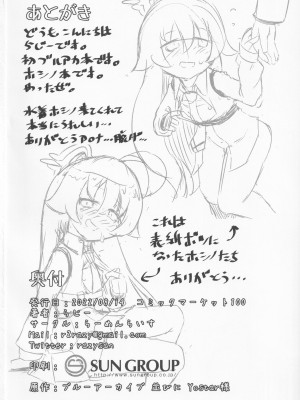 あとがき
どうもこんにちは
らじーです。
初ブルアカ本です。
ホシノ本です。
めったぜ。
水着ホシノ来てくれて
本当にうれしい…
ありがとうアロナ…
これは
表紙ボツに
なったホシノたち
ありがとう…
奥付
発行日：2022/08/14　コミックマーケット100
著者：らじー
サークル：らーめんらいす
Mail：r3razy@gmail.com
Twitter：razysan
印刷：
SUN GROUP
http://www.sungroup.co.jp/
原作：ブルーアーカイブ 並びに Yostar様